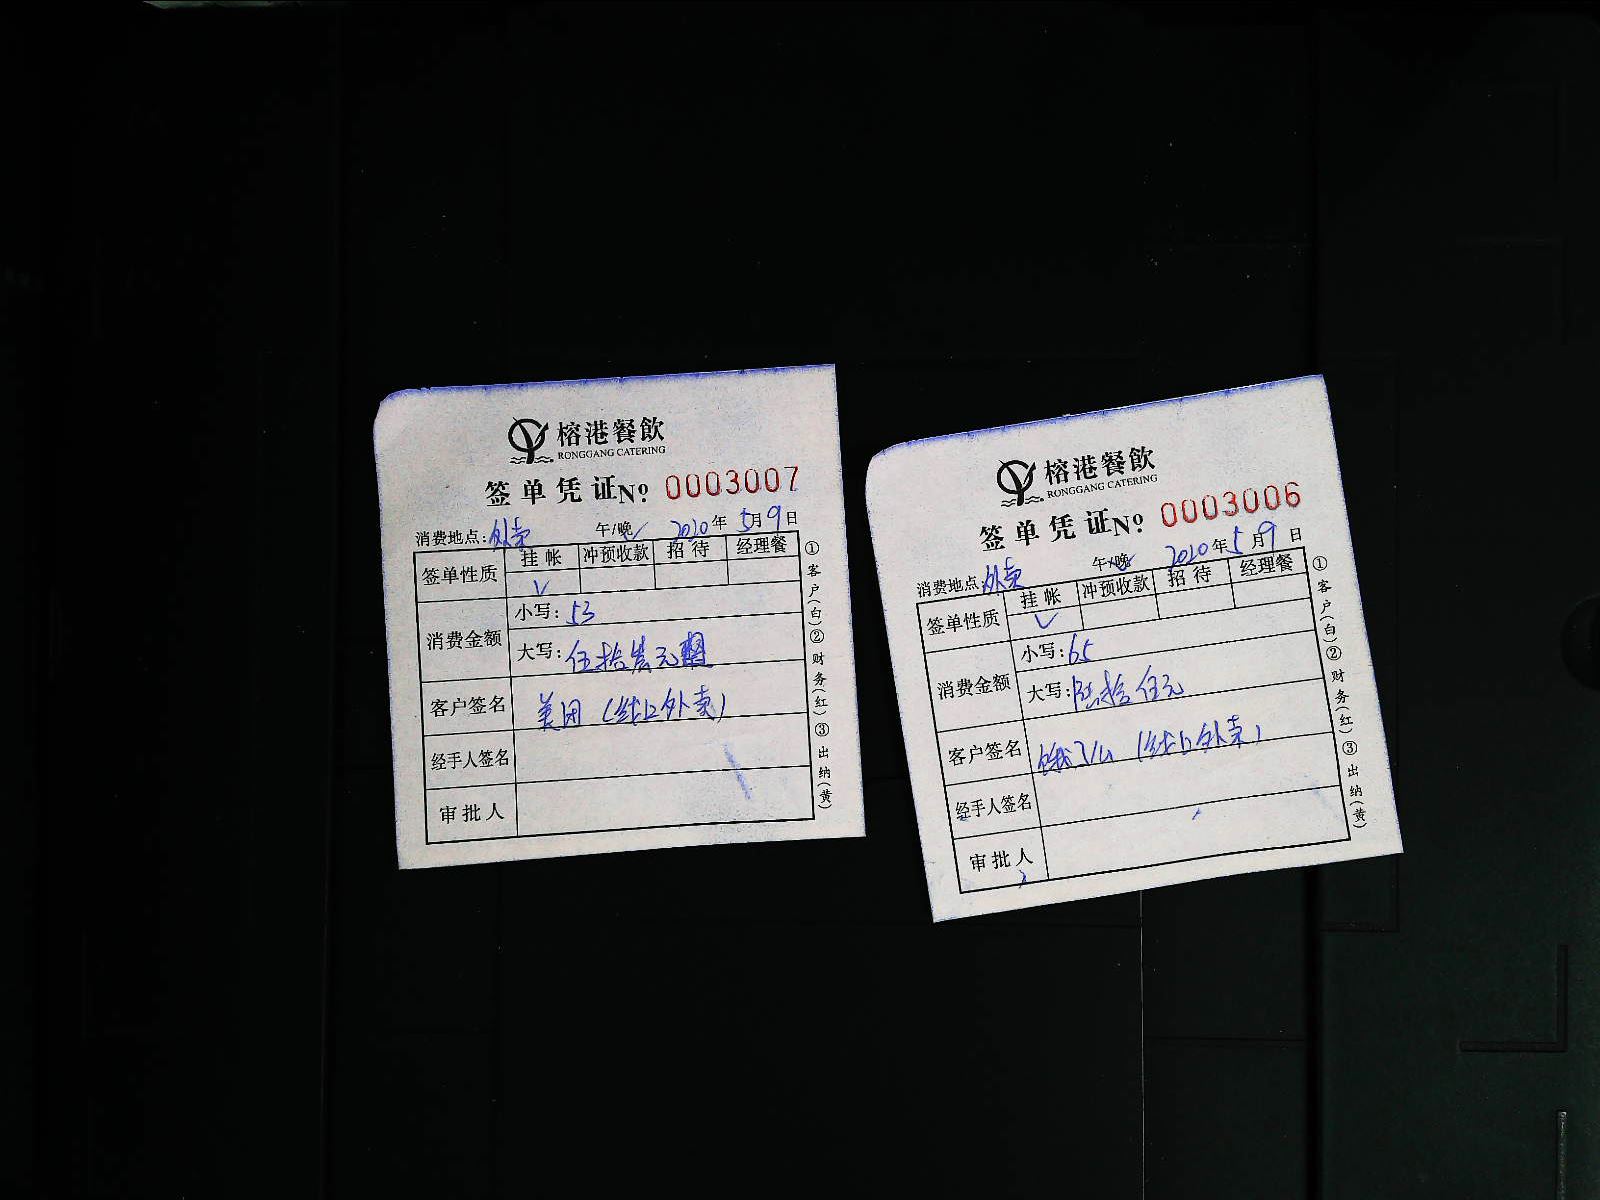 榕港餐飲
RONGGANG CATERING
签单凭证№ 0003007
消费地点: 外卖 午/晚 2020年5月9日
签单性质 挂帐 冲预收款 招待 经理餐
消费金额 小写: 53
大写: 伍拾叁元整
客户签名 美团 (线上外卖)
经手人签名
审批人
①客户(白)②财务(红)③出纳(黄)
榕港餐飲
RONGGANG CATERING
签单凭证№ 0003006
消费地点: 外卖 午/晚 2020年5月9日
签单性质 挂帐 冲预收款 招待 经理餐
消费金额 小写: 65
大写: 陆拾伍元
客户签名 饿了么 (线上外卖)
经手人签名
审批人
①客户(白)②财务(红)③出纳(黄)